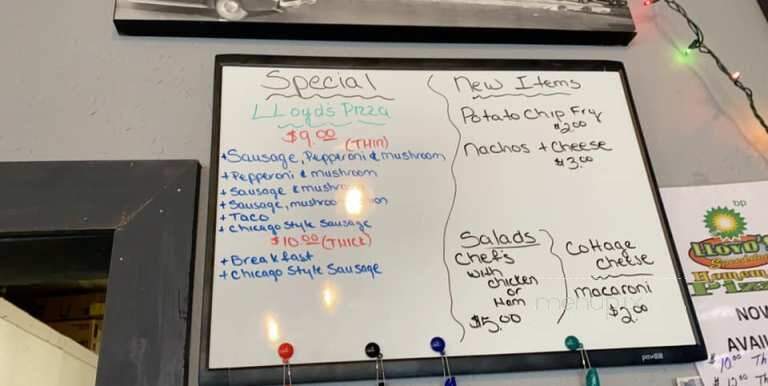 Special
LLoyd's Pizza
$9.00 (THIN)
+Sausage, Pepperoni & mushroom
+Pepperoni & mushroom
+Sausage & mushr
+Sausage, mushroo on
+Taco
+Chicago Style Sausage
$10.00 (THICK)
+Breakfast
+Chicago Style Sausage
New Items
Potato Chip Fry
$2.00
Nachos + Cheese
$3.00
Salads
Chef's
with
chicken
or
Ham
$5.00
Cottage
Cheese
macaroni
$2.00
menupix
bp
LLOYD'S
NOW
AVAI
$10.00 Th